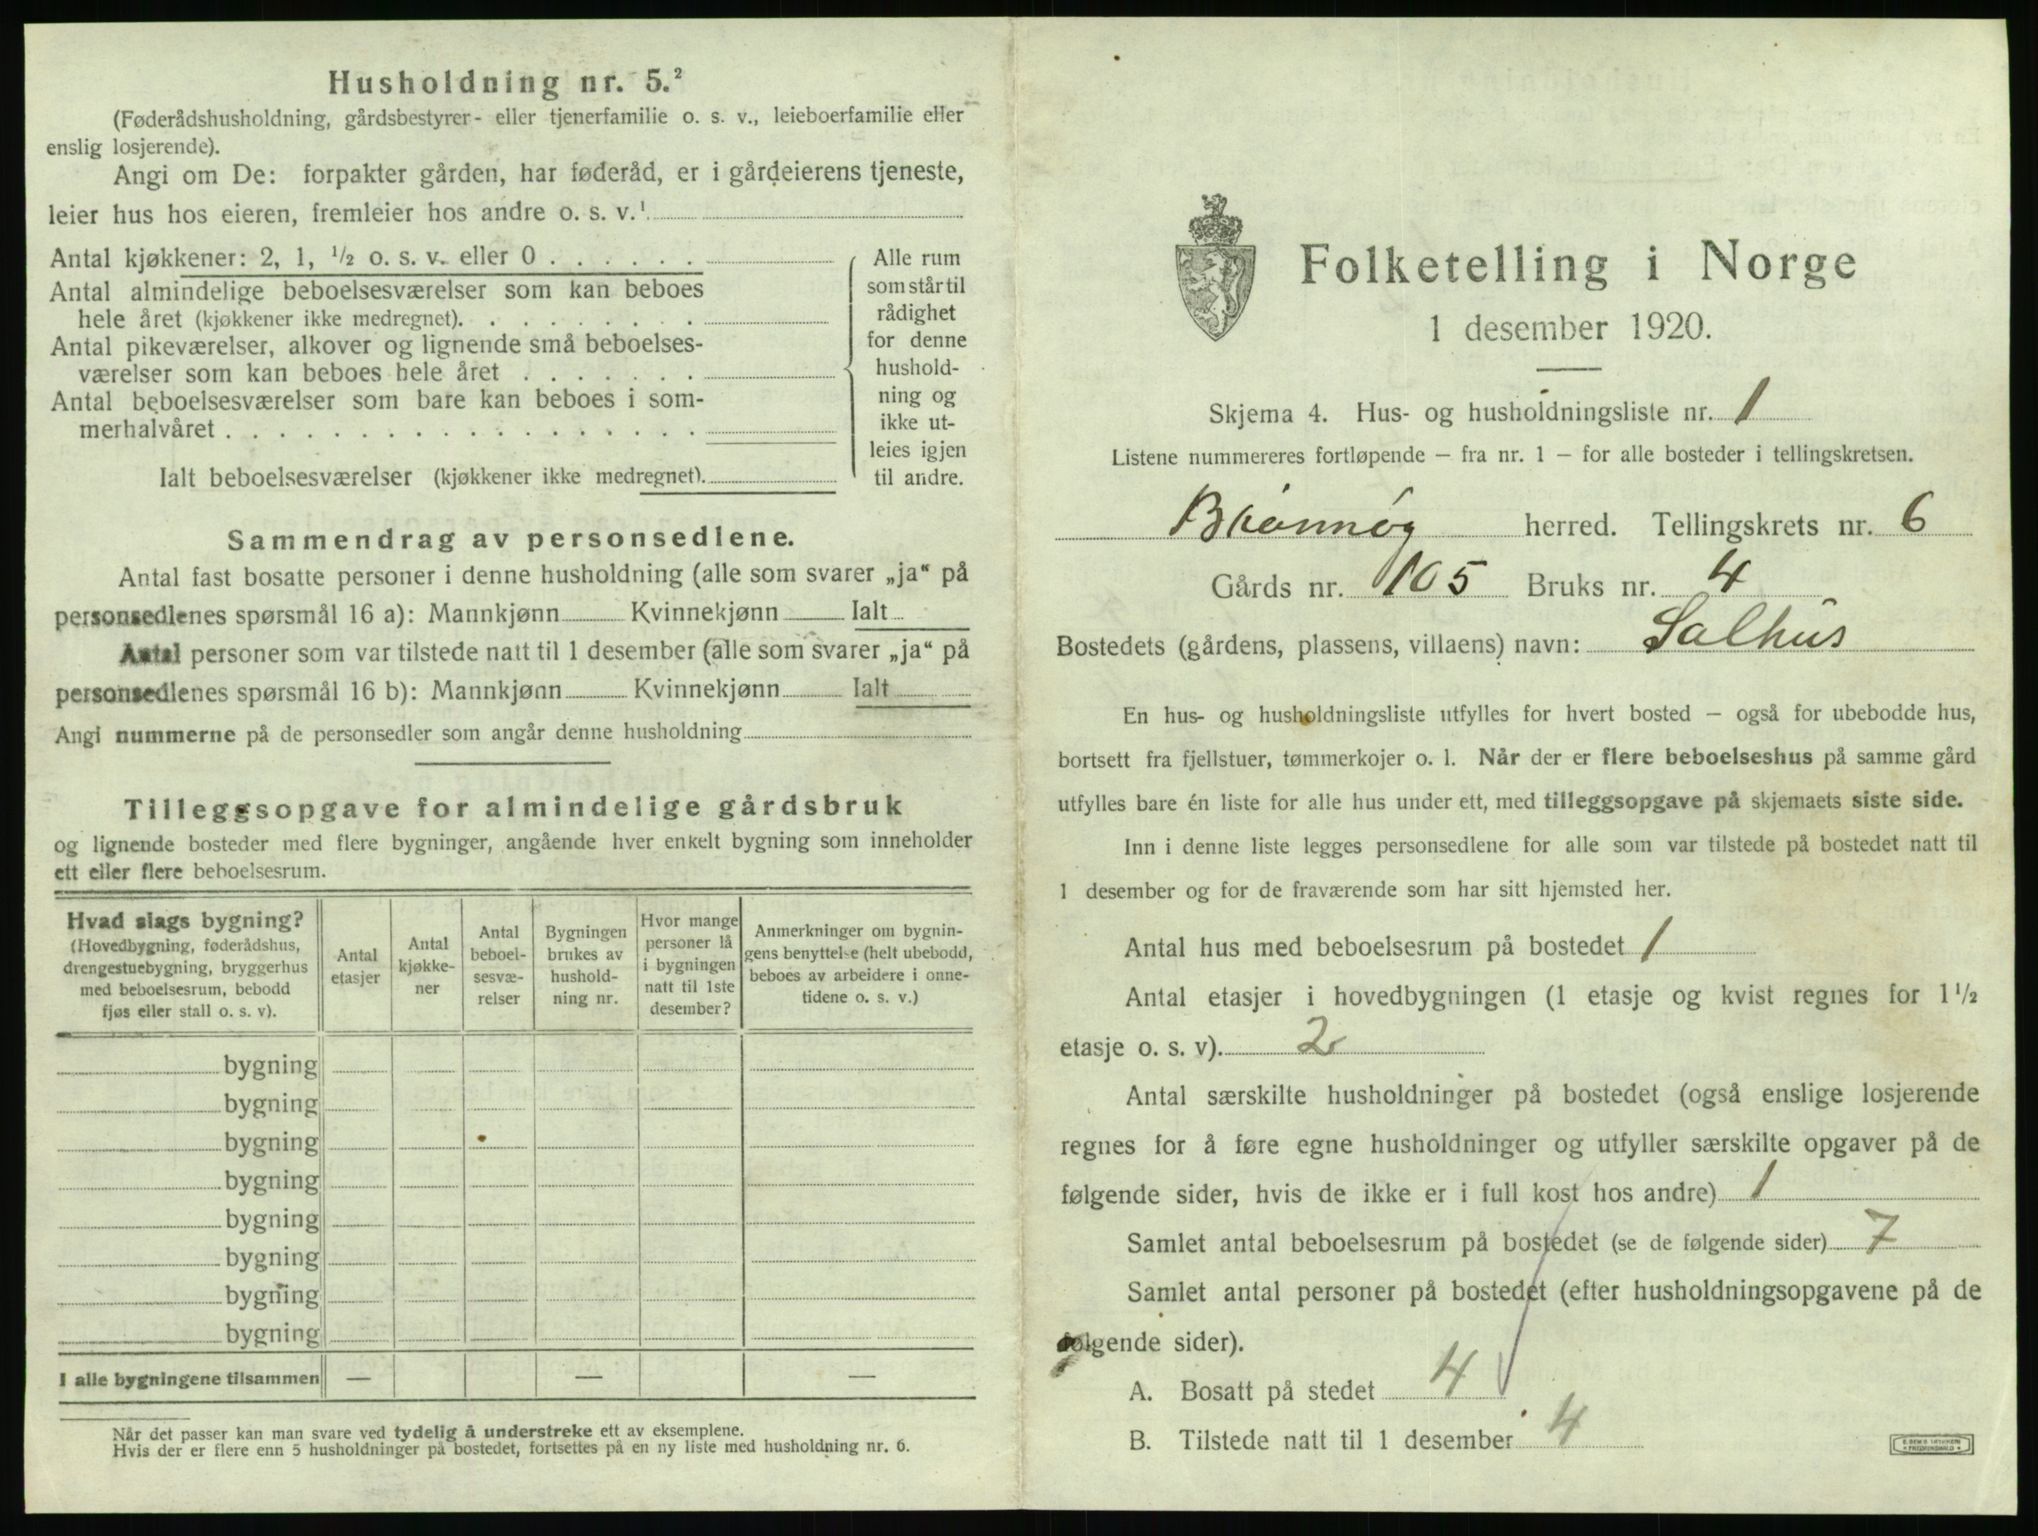 Husholdning nr. 5.²
(Føderådshusholdning, gårdsbestyrer- eller tjenerfamilie o. s. v., leieboerfamilie eller
enslig losjerende).
Angi om De: forpakter gården, har føderåd, er i gårdeierens tjeneste,
leier hus hos eieren, fremleier hos andre o. s. v.¹
Antal kjøkkener: 2, 1, ½ o. s. v. eller 0 . . . . . .
Antal almindelige beboelsesværelser som kan beboes
hele året (kjøkkener ikke medregnet). . . . . . . . .
Antal pikeværelser, alkover og lignende små beboelses-
værelser som kan beboes hele året . . . . . . .
Antal beboelsesværelser som bare kan beboes i som-
merhalvåret . . . . . . . . . . . . . . . . . .
Ialt beboelsesværelser (kjøkkener ikke medregnet).
Alle rum
som står til
rådighet
for denne
hushold-
ning og
ikke ut-
leies igjen
til andre.
Sammendrag av personsedlene.
Antal fast bosatte personer i denne husholdning (alle som svarer „ja“ på
personsedlenes spørsmål 16 a): Mannkjønn Kvinnekjønn Ialt
Antal personer som var tilstede natt til 1 desember (alle som svarer „ja“ på
personsedlenes spørsmål 16 b): Mannkjønn Kvinnekjønn Ialt
Angi nummerne på de personsedler som angår denne husholdning
Tilleggsopgave for almindelige gårdsbruk
og lignende bosteder med flere bygninger, angående hver enkelt bygning som inneholder
ett eller flere beboelsesrum.
Hvad slags bygning?
(Hovedbygning, føderådshus,
drengestuebygning, bryggerhus
med beboelsesrum, bebodd
fjøs eller stall o. s. v).
Antal
etasjer
Antal
kjøkke-
ner
Antal
beboel-
sesvæ-
relser
Bygningen
brukes av
hushold-
ning nr.
Hvor mange
personer lå
i bygningen
natt til 1ste
desember?
Anmerkninger om bygnin-
gens benyttelse (helt ubebodd,
beboes av arbeidere i onne-
tidene o. s. v.)
bygning
bygning
bygning
bygning
bygning
bygning
bygning
bygning
I alle bygningene tilsammen — — —
Når det passer kan man svare ved tydelig å understreke ett av eksemplene.
Hvis der er flere enn 5 husholdninger på bostedet, fortsettes på en ny liste med husholdning nr. 6.
Folketelling i Norge
1 desember 1920.
Skjema 4. Hus- og husholdningsliste nr. 1
Listene nummereres fortløpende – fra nr. 1 – for alle bosteder i tellingskretsen.
Brønnøy herred. Tellingskrets nr. 6
Gårds nr. 105 Bruks nr. 4
Bostedets (gårdens, plassens, villaens) navn: Salhus
En hus- og husholdningsliste utfylles for hvert bosted – også for ubebodde hus,
bortsett fra fjellstuer, tømmerkojer o. l. Når der er flere beboelseshus på samme gård
utfylles bare én liste for alle hus under ett, med tilleggsopgave på skjemaets siste side.
Inn i denne liste legges personsedlene for alle som var tilstede på bostedet natt til
1 desember og for de fraværende som har sitt hjemsted her.
Antal hus med beboelsesrum på bostedet 1
Antal etasjer i hovedbygningen (1 etasje og kvist regnes for 1½
etasje o. s. v). 2
Antal særskilte husholdninger på bostedet (også enslige losjerende
regnes for å føre egne husholdninger og utfyller særskilte opgaver på de
følgende sider, hvis de ikke er i full kost hos andre) 1
Samlet antal beboelsesrum på bostedet (se de følgende sider) 7
Samlet antal personer på bostedet (efter husholdningsopgavene på de
følgende sider).
A. Bosatt på stedet 4
B. Tilstede natt til 1 desember 4